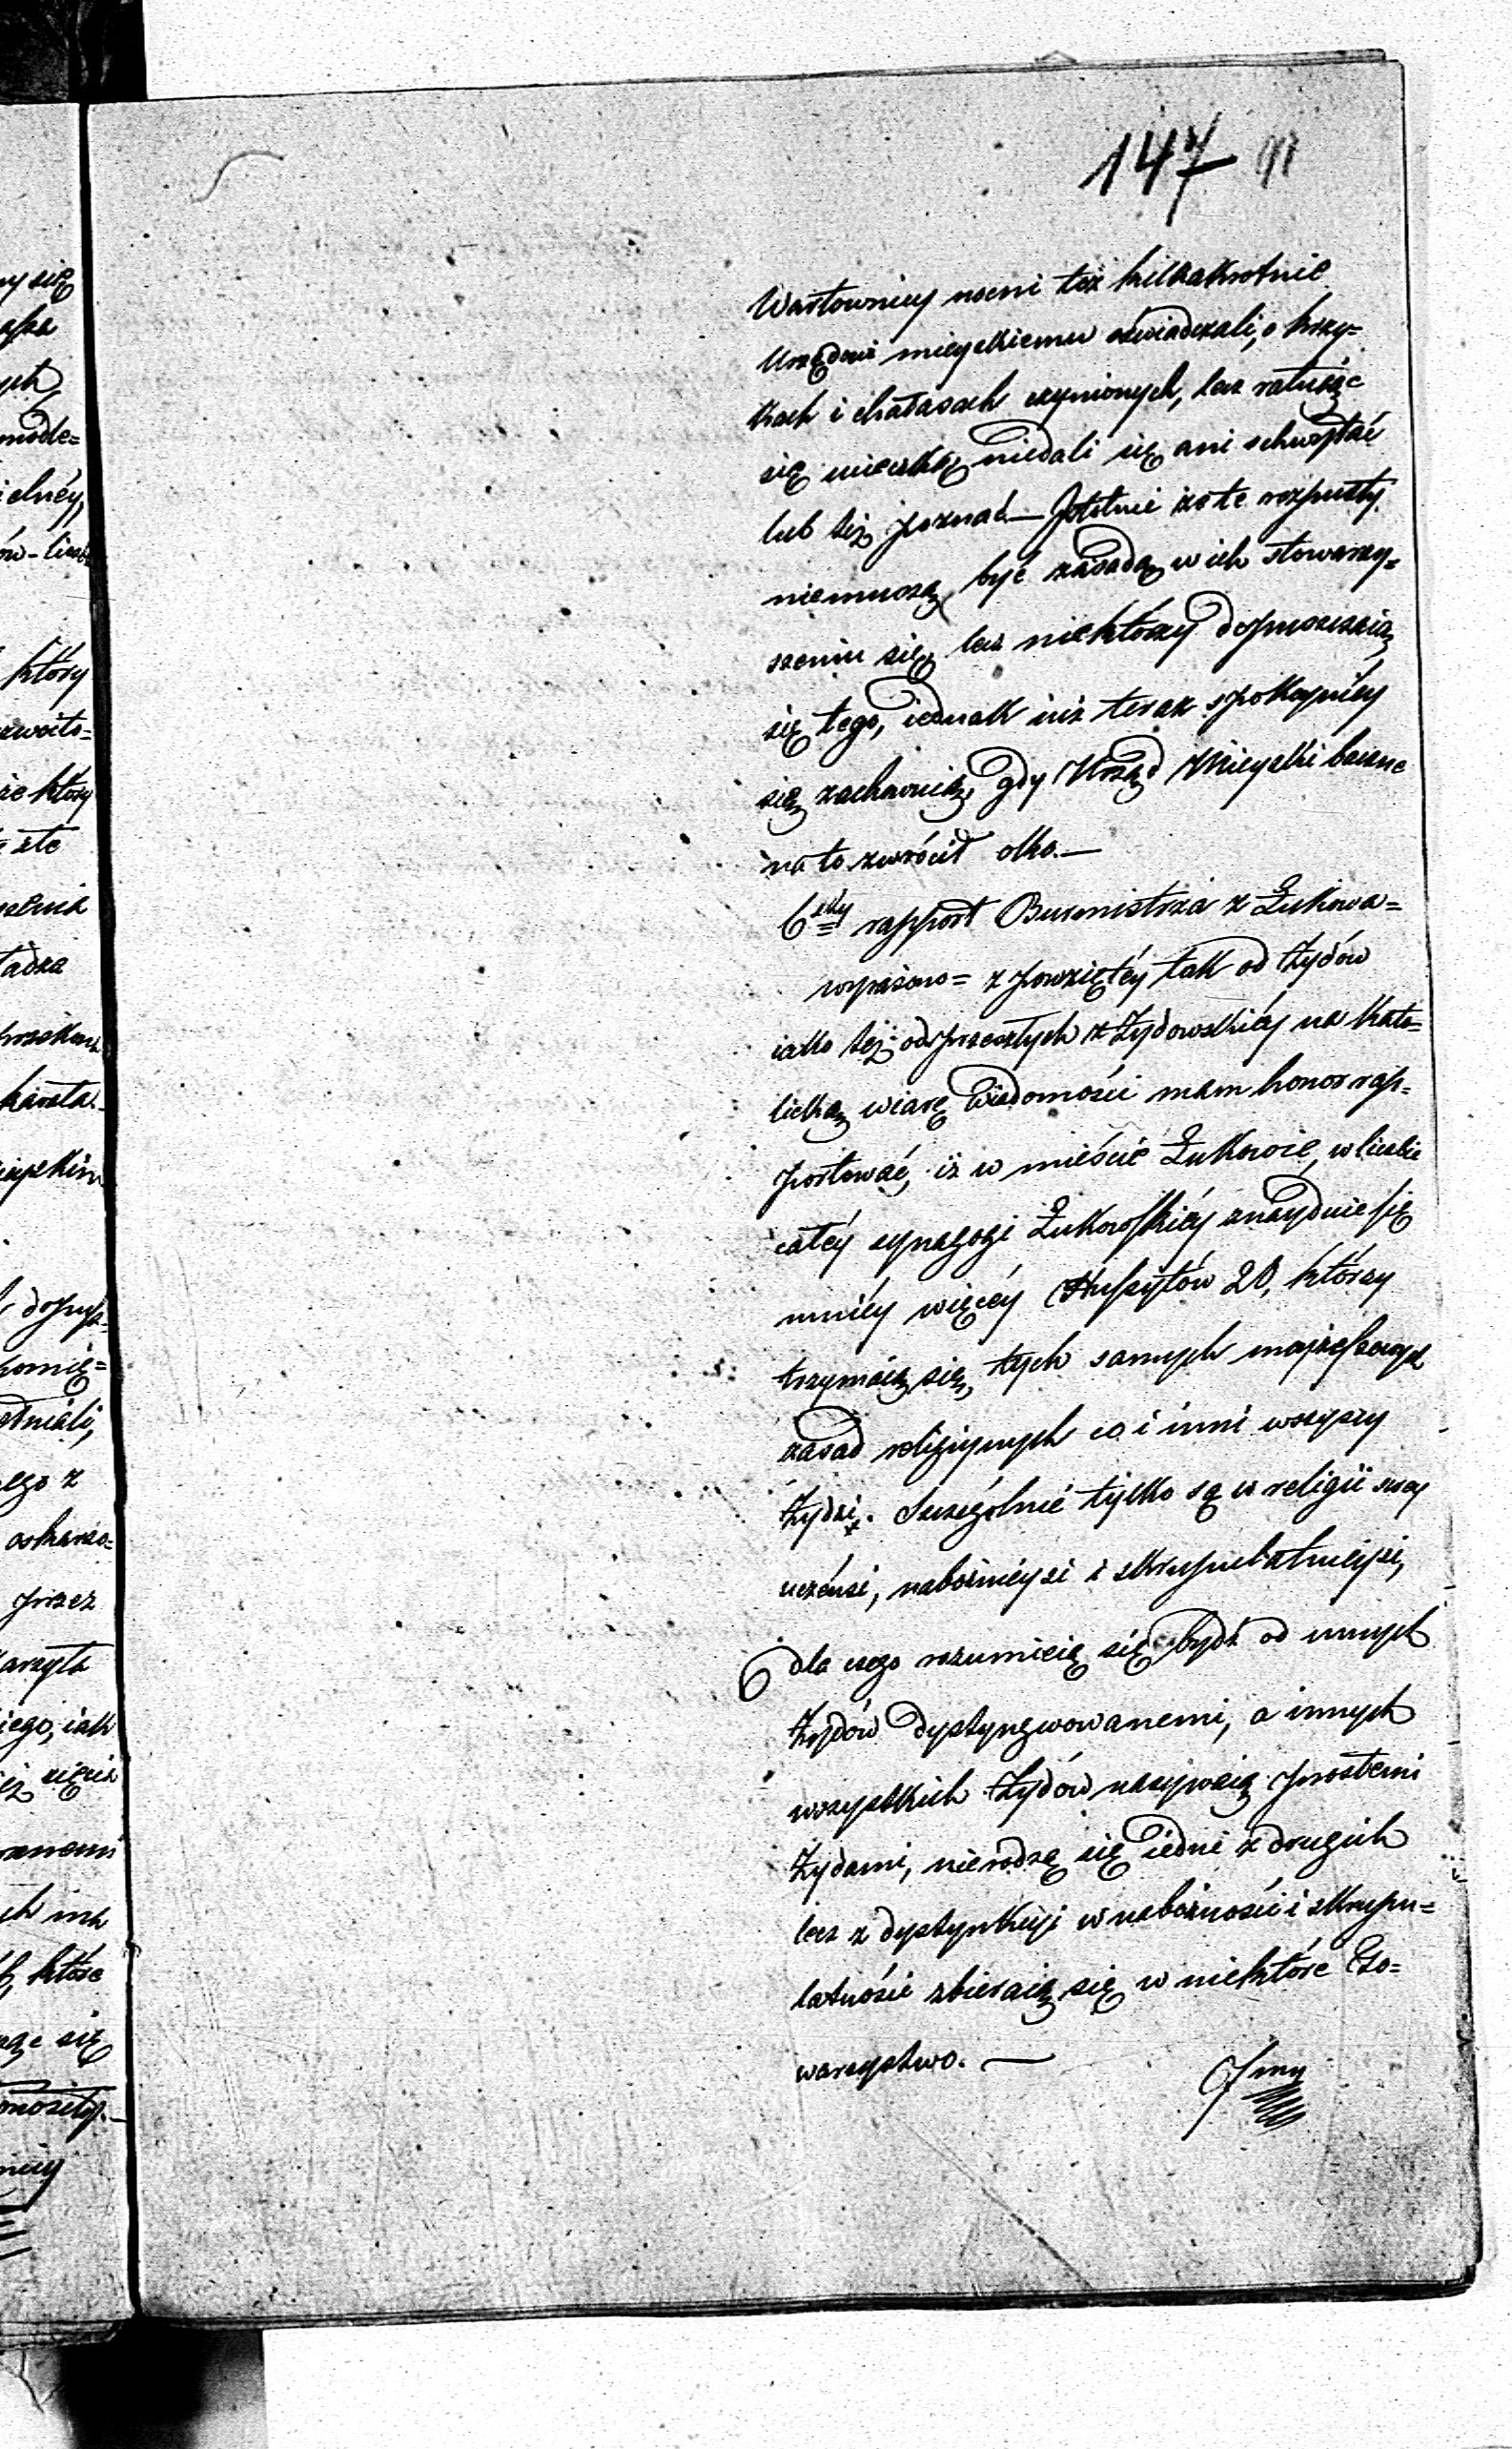 147 97
ny się
ych
mode=
ielnéy,
który
zwoito=
że który
złe
pomię=
ego z
oskarżo=
przez
iego, iak
które
się
Wartownicy nocni też kilkakrotnie
Urzędowi mieyskiemu oświadczali, o krzy=
kach i chałasach czynionych, lecz ratuiąc
się ucieczką niedali się ani schwytać
lub téż poznać — Istotnie że te rozpusty
niemuszą być zasadą w ich stowarzy=
szeniu się, lecz niektórzy dopuszczaią
się tego, iednak iuż teraz spokoyniéy
się zachowuią, gdy Urząd Mieyski baczne
na to zwrócił oko. —
6sty rapport Burmistrza z Łukowa =
wypisano = z powziętéy tak od Żydów
iako też od przeszłych z Żydowskiéy na Kato=
licką wiarę wiadomości mam honor rap=
portować, iż w mieście Łukowie, w liczbie
całéy synagogi Łukowskiéy znayduie się
mniéy więcéy Hussytów 20, którzy
trzymaią się, tych samych mojżeszowych
zasad religiynych co i inni wszyscy
Żydzi. Szczególnie tylko są w religii swey
uczeńsi, nabożnieysi i skrupulatnieysi,
dla czego rozumieią się bydź od innych
Żydów dystyngwowanemi, a innych
wszystkich Żydów nazywaią prostemi
Żydami, nierodzą się iedni z drugich
lecz z dystynkcyi w nabożności i skrupu=
latności zbieraią się w niektóre To=
warzystwo. —
7my